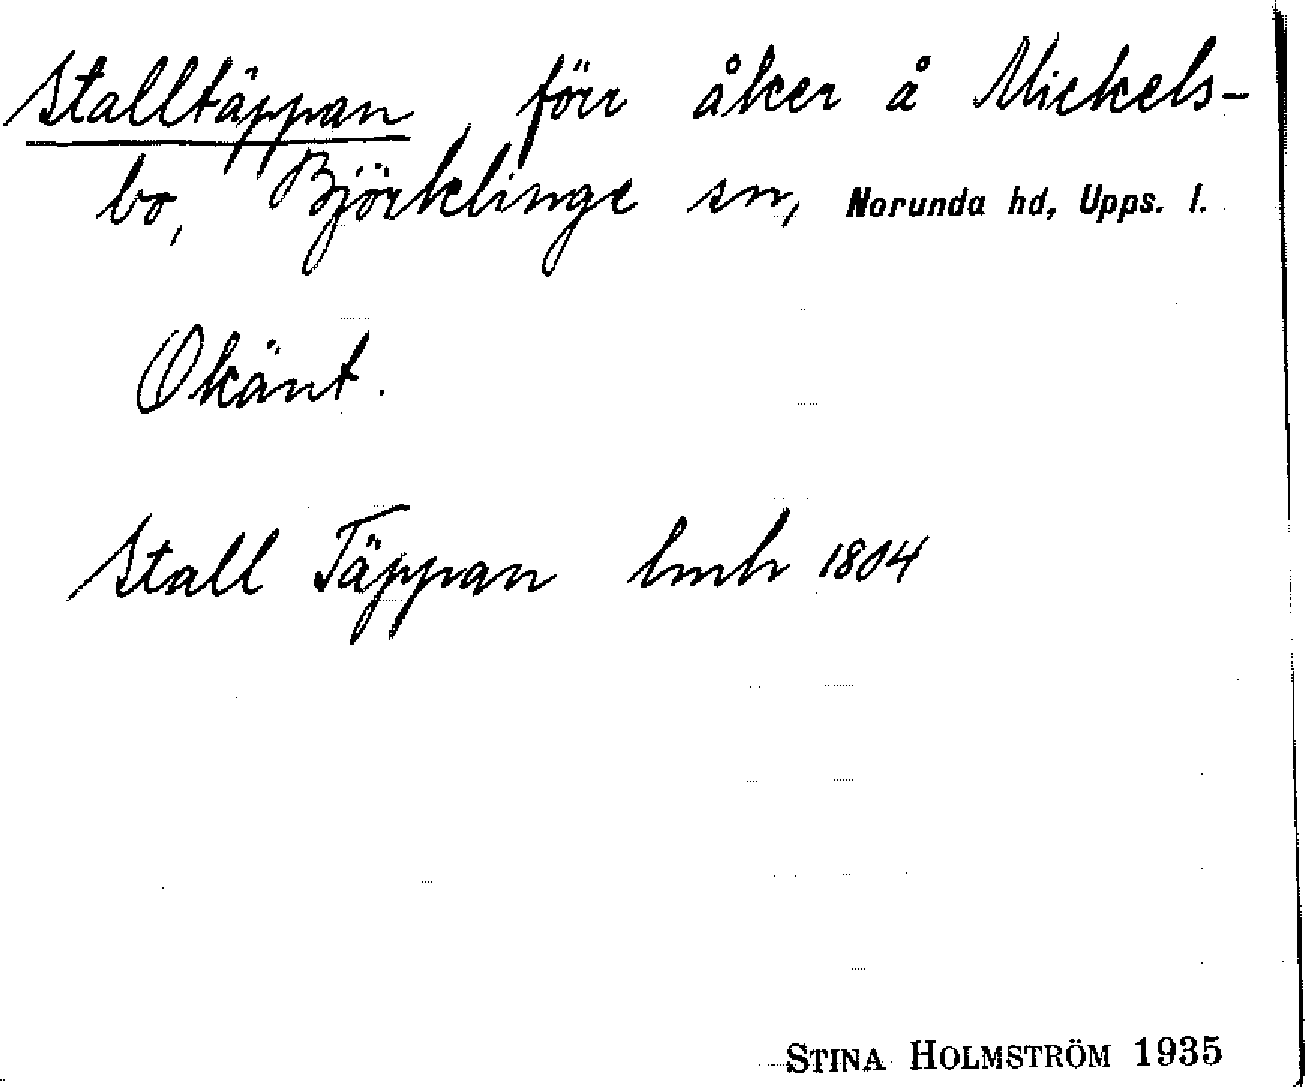 Stalltäppan, förr åker å Mickels-
bo, Björklinge sn, Norunda hd, Upps. l.
Okänt.
Stall Täppan lmh 1804
STINA HOLMSTRÖM 1935